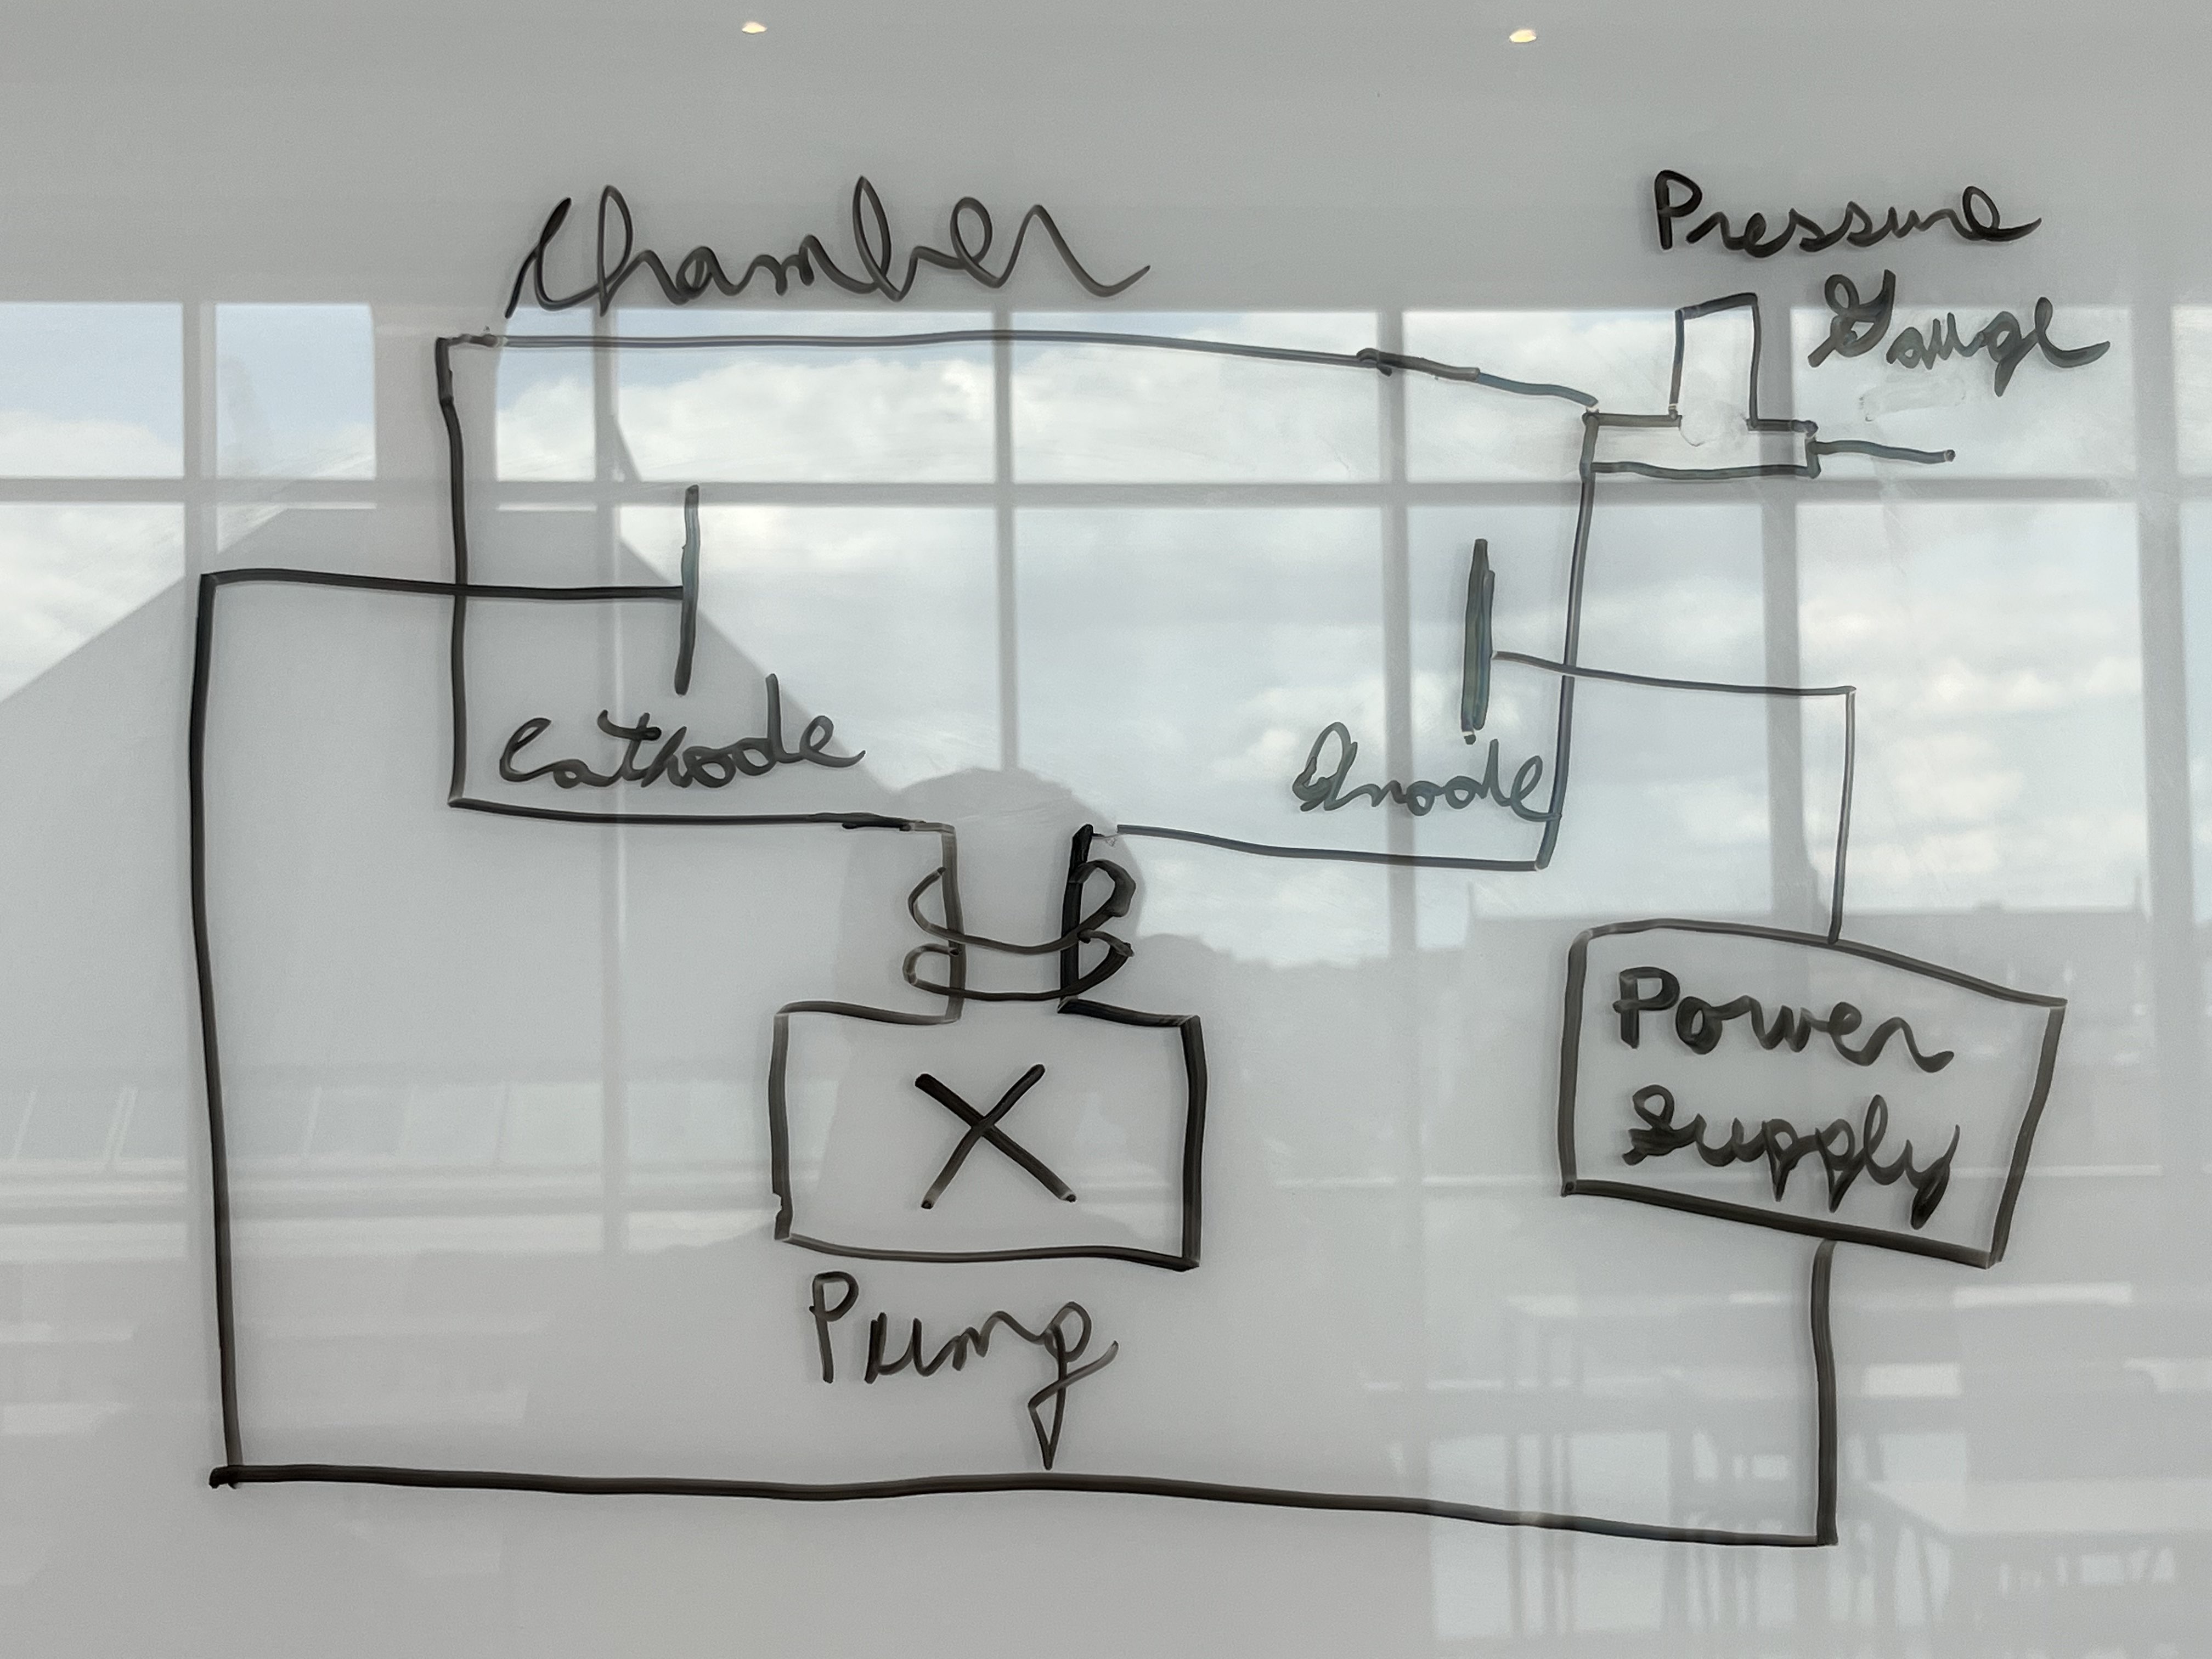 Chamber
Pressure
Gauge
Cathode
Anode
Power
Supply
X
Pump